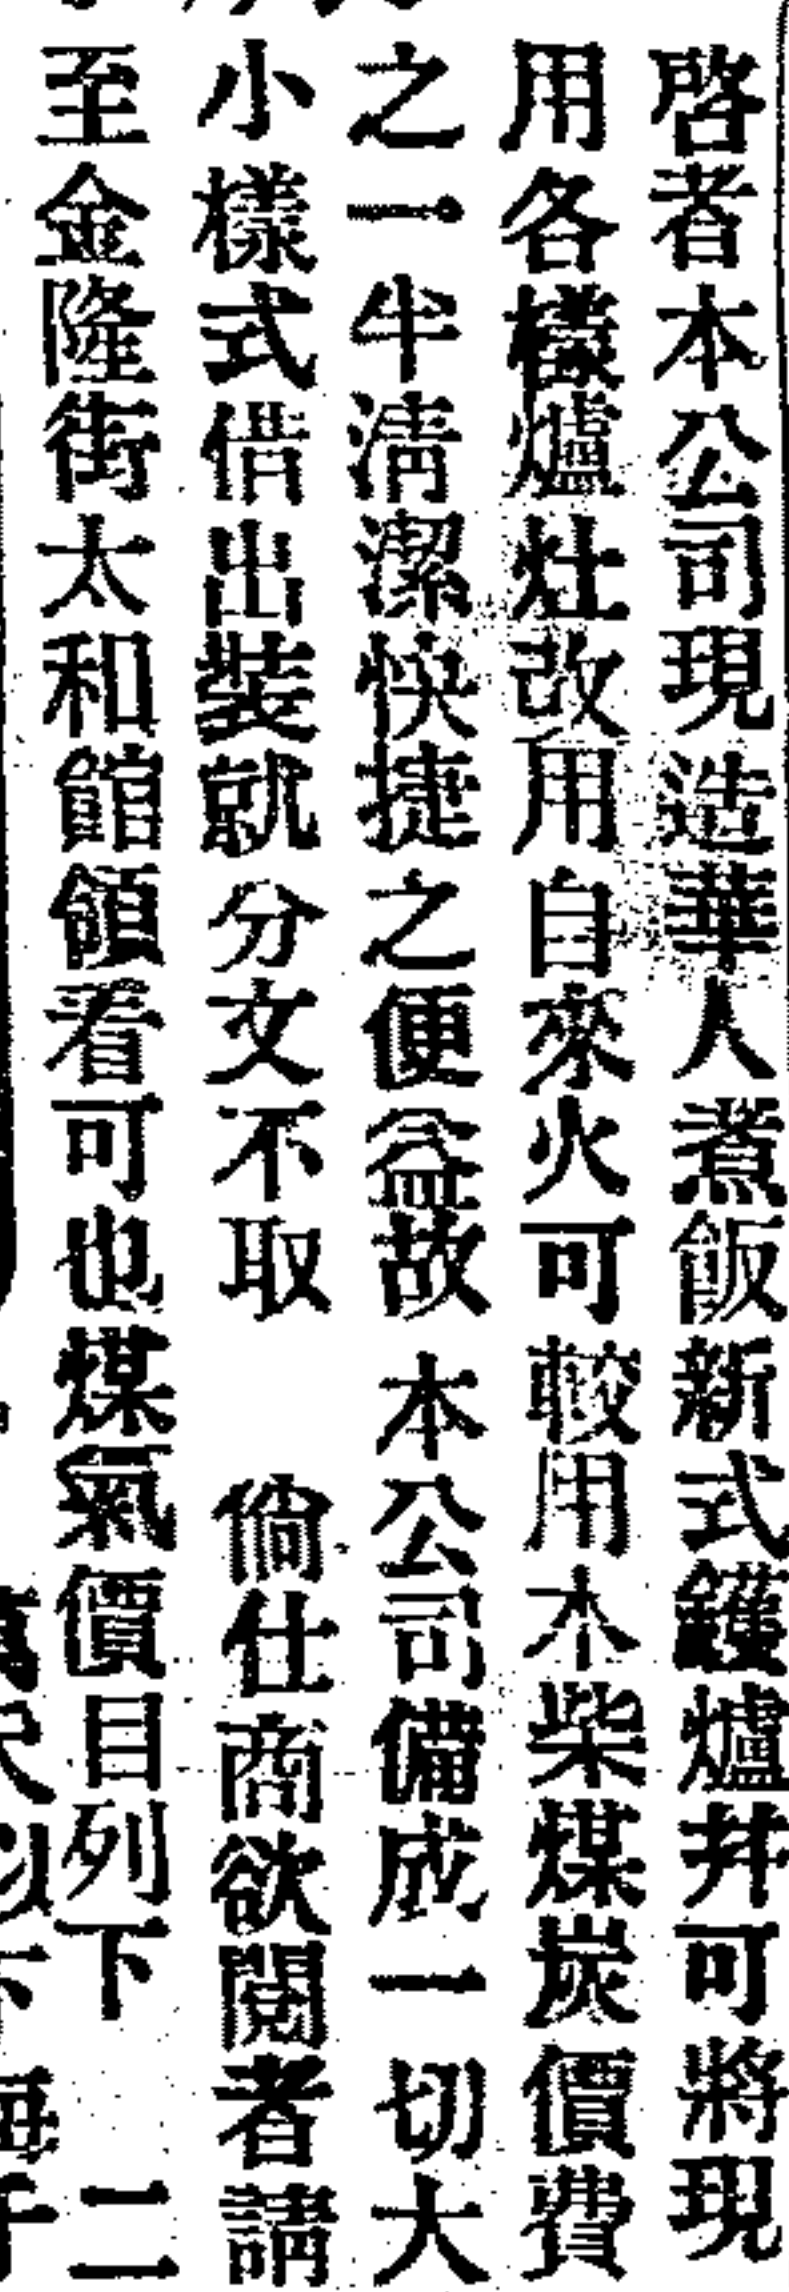 啓者本公司現造華人煮飯新式鑊爐并可將現
用各樣爐灶改用自來火可較用木柴煤炭價費
之一半清潔快捷之便益故 本公司備成一切大
小樣式借出裝就分文不取 倘仕商欲閱者請
至金隆街太和館領看可也煤氣價目列下 二